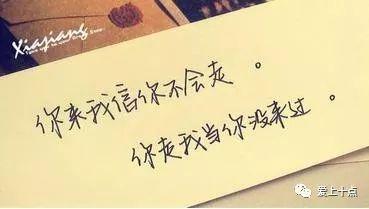 Xiajiang
你来我信你不会走。
你走我当你没来过。
爱上十点